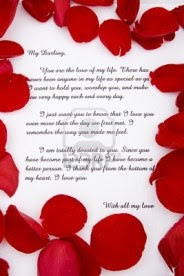 My Darling,
You are the love of my life. There has
never been anyone in my life as special as
I want to hold you, worship you, and make
you very happy each and every day.
I just want you to know that I love you
even more than the day we first met. I
remember the way you made me feel.
I am totally devoted to you. Since you
have become part of my life I have become a
better person. I thank you from the bottom of
my heart. I love you.
With all my love